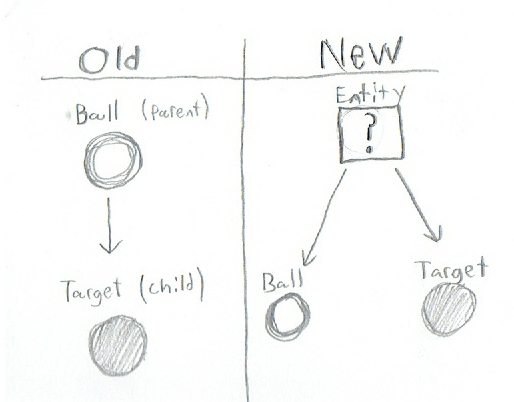 Old
Ball (parent)
Target (child)
New
Entity
?
Ball
Target